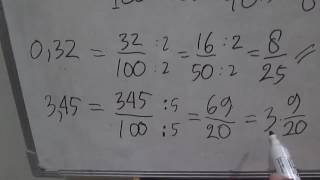 0,32 = 32/100 :2/:2 = 16/50 :2/:2 = 8/25 //
3,45 = 345/100 :5/:5 = 69/20 = 3 9/20